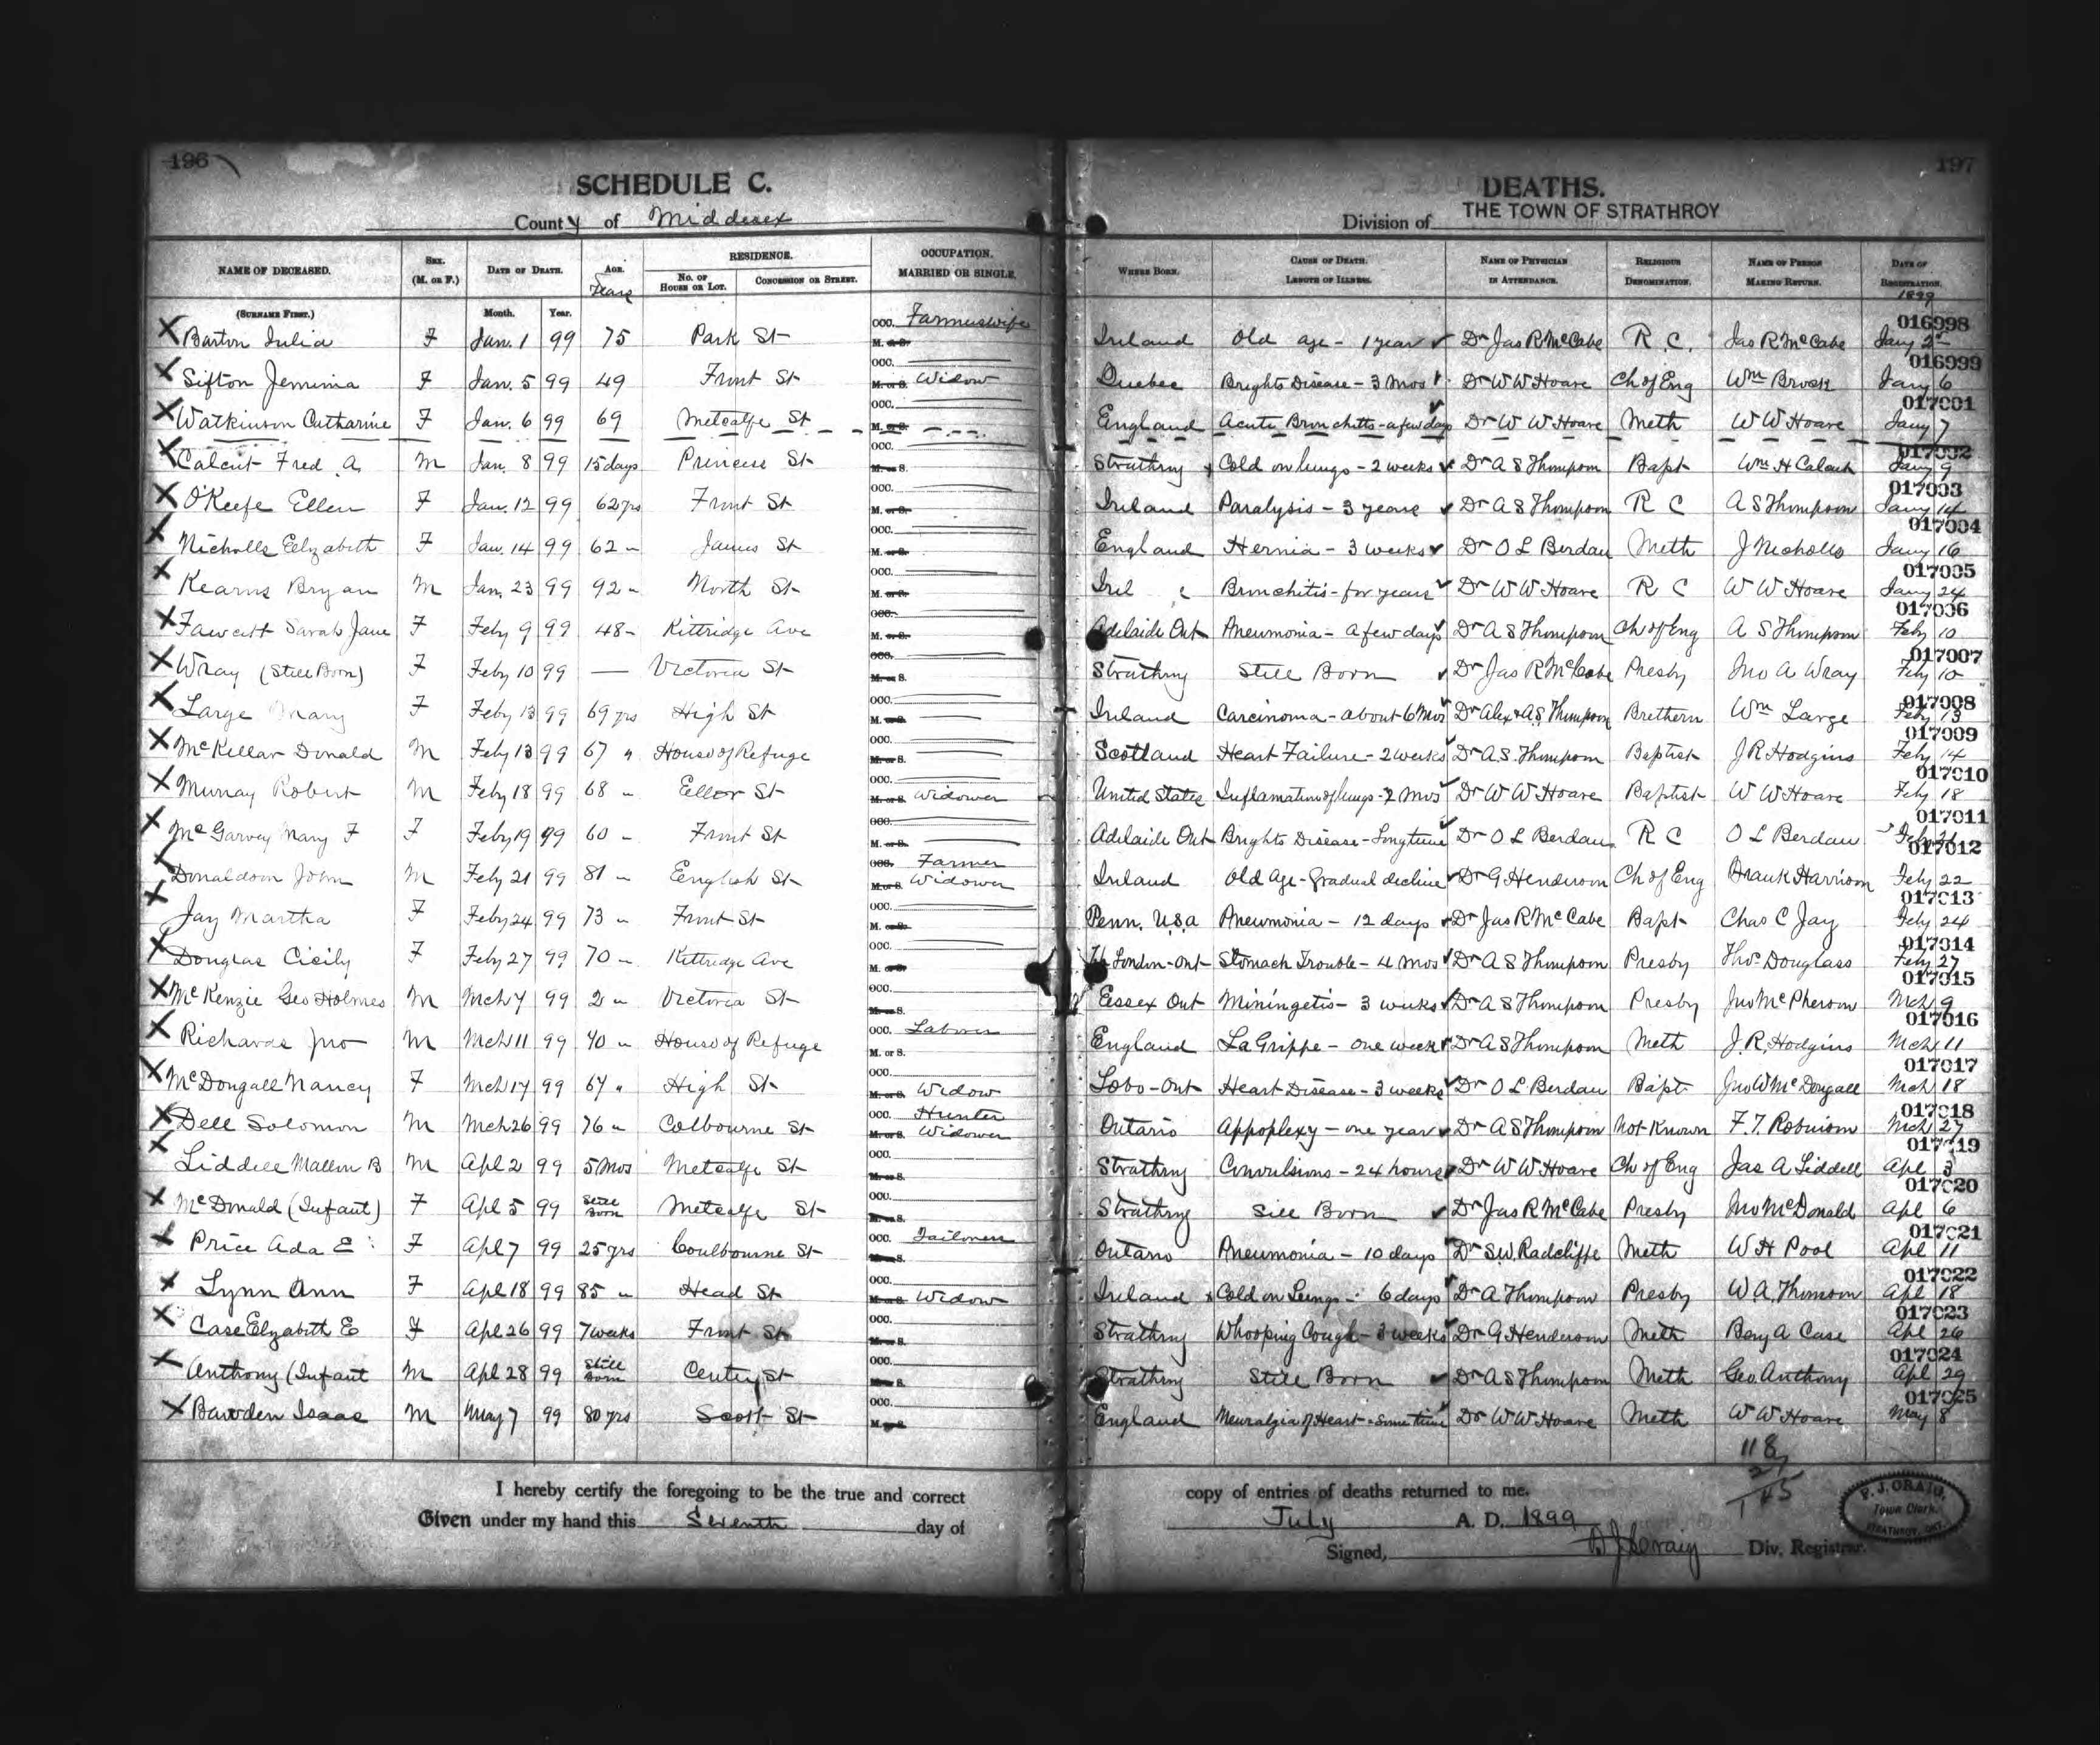 196 197
SCHEDULE C. DEATHS.
County of Middesex Division of THE TOWN OF STRATHROY
NAME OF DECEASED. SEX. (M. OR F.) DATE OF DEATH. AGE. Years RESIDENCE. No. OF HOUSE OR LOT. CONCESSION OR STREET. OCCUPATION. MARRIED OR SINGLE. WHERE BORN. CAUSE OF DEATH. LENGTH OF ILLNESS. NAME OF PHYSICIAN IN ATTENDANCE. RELIGIOUS DENOMINATION. NAME OF PERSON MAKING RETURN. DATE OF REGISTRATION. 1899
(SURNAME FIRST.) Month. Year.
X Barton Julia F Jan. 1 99 75 Park St OCC. Farmers wife M. Ireland Old age - 1 year Dr Jas R McCabe R. C. Jas R McCabe 016998 Jany 2
X Sifton Jemima F Jan. 5 99 49 Front St OCC. Widow Quebec Brights Disease - 3 mos Dr W W Hoare Ch of Eng Wm Brock 016999 Jany 6
X Watkinson Catharine F Jan. 6 99 69 Metcalfe St OCC. M. England Acute Bronchitis - a few days Dr W W Hoare Meth W W Hoare 017001 Jany 7
X Calcut Fred A. M Jan. 8 99 15 days Princess St OCC. S. Strathroy Cold on lungs - 2 weeks Dr A S Thompson Bapt Wm H Calcut 017002 Jany 9
X O'Keefe Ellen F Jan. 12 99 62 yrs Front St OCC. M. Ireland Paralysis - 3 years Dr A S Thompson R C A S Thompson 017003 Jany 14
X Nicholls Elizabeth F Jan. 14 99 62 " James St OCC. M. England Hernia - 3 weeks Dr O L Berdan Meth J Nicholls 017004 Jany 16
X Kearns Bryan M Jan. 23 99 92 " North St OCC. M. Irel Bronchitis - for years Dr W W Hoare R C W W Hoare 017005 Jany 24
X Fawcett Sarah Jane F Feby 9 99 48 - Kittridge Ave OCC. M. Adelaide Ont Pneumonia - a few days Dr A S Thompson Ch of Eng A S Thompson 017006 Feby 10
X Wray (Still Born) F Feby 10 99 — Victoria St OCC. S. Strathroy Still Born Dr Jas R McCabe Presby Jno A Wray 017007 Feby 10
X Large Mary F Feby 13 99 69 yrs High St OCC. M. Ireland Carcinoma - about 6 mos Dr Alex & A.S. Thompson Brethern Wm Large 017008 Feby 13
X McKellar Donald M Feby 13 99 67 " House of Refuge OCC. S. Scotland Heart Failure - 2 weeks Dr A. S. Thompson Baptist J R Hodgins 017009 Feby 14
X Murray Robert M Feby 18 99 68 " Ellor St OCC. Widower United States Inflamation of lungs - 2 mos Dr W W Hoare Baptist W W Hoare 017010 Feby 18
X McGarvey Mary F F Feby 19 99 60 - Front St OCC. M. Adelaide Ont Brights Disease - Long time Dr O L Berdan R C O L Berdan 017011 Feby 21
X Donaldson John M Feby 21 99 81 " English St OCC. Farmer Widower Ireland Old age - gradual decline Dr G Henderson Ch of Eng Frank Harrison 017012 Feby 22
X Jay Martha F Feby 24 99 73 " Front St OCC. M. Penn. U.S.a Pneumonia - 12 days Dr Jas R McCabe Bapt Chas C Jay 017013 Feby 24
X Douglas Cicily F Feby 27 99 70 " Kittridge Ave OCC. M. London - Ont Stomach Trouble - 4 mos Dr A S Thompson Presby Thos Douglass 017014 Feby 27
X McKenzie Geo Holmes M Mch 7 99 2 " Victoria St OCC. S. Essex Ont Miningetis - 3 weeks Dr A S Thompson Presby Jno McPherson 017015 Mch 9
X Richards Jno M Mch 11 99 40 " House of Refuge OCC. Laborer M. or S. England LaGrippe - one week Dr A S Thompson Meth J. R. Hodgins 017016 Mch 11
X McDougall Nancy F Mch 17 99 67 " High St OCC. Widow Lobo - Ont Heart Disease - 3 weeks Dr O L Berdan Bapt Jno W McDougall 017017 Mch 18
X Dell Solomon M Mch 26 99 76 " Colbourne St OCC. Hunter Widower Ontario Appoplexy - one year Dr A S Thompson Not Known F. T. Robinson 017018 Mch 27
X Liddell B M Apl 2 99 5 Mos Metcalfe St OCC. S. Strathroy Convulsions - 24 hours Dr W W Hoare Ch of Eng Jas A Liddell 017019 Apl 3
X McDonald (Infant) F Apl 5 99 Still Born Metcalfe St OCC. S. Strathroy Sill Born Dr Jas R McCabe Presby Jno McDonald 017020 Apl 6
X Price Ada E F Apl 7 99 25 yrs Coulbourne St OCC. Tailoress S. Ontario Pneumonia - 10 days Dr S.W. Radcliffe Meth W H Pool 017021 Apl 11
X Lynn Ann F Apl 18 99 85 " Head St OCC. Widow Ireland Cold on Lungs - 6 days Dr A Thompson Presby W. A. Thomson 017022 Apl 18
X Case Elzabith E F Apl 26 99 7 weeks Front St OCC. S. Strathroy Whooping Cough - 3 weeks Dr G Henderson Meth Benj A Case 017023 Apl 26
X Anthony (Infant M Apl 28 99 Still Born Center St OCC. S. Strathroy Still Born Dr A S Thompson Meth Geo Anthony 017024 Apl 29
X Bawden Isaac M May 7 99 80 yrs Scott St OCC. M. England Neuralgia of Heart - Some time Dr W W Hoare Meth W W Hoare 017025 May 8
118
27
145
I hereby certify the foregoing to be the true and correct copy of entries of deaths returned to me.
Given under my hand this Seventh day of July A. D. 1899
Signed, Craig Div. Registrar.
CRAIG, Town Clerk. STRATHROY, ONT.